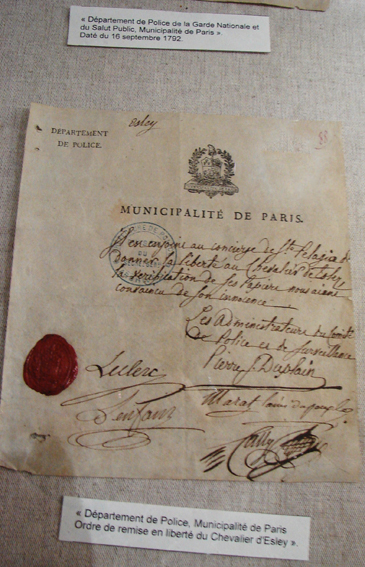 « Département de Police de la Garde Nationale et
du Salut Public, Municipalité de Paris ».
Daté du 16 septembre 1792.
Esley
DÉPARTEMENT
DE POLICE.
MUNICIPALITÉ DE PARIS.
Il est enjoint au concierge de Ste Pelagie de
donner la liberté au Chevalier
la verification de ses Papiers nous aiant
convaincu de son
Les administrateurs
de Police et de Surveillance
Pierre J. Duplain
Leclerc
Marat l'ami du peuple
Lenfant
Jourdeuil
« Département de Police, Municipalité de Paris
Ordre de remise en liberté du Chevalier d'Esley ».